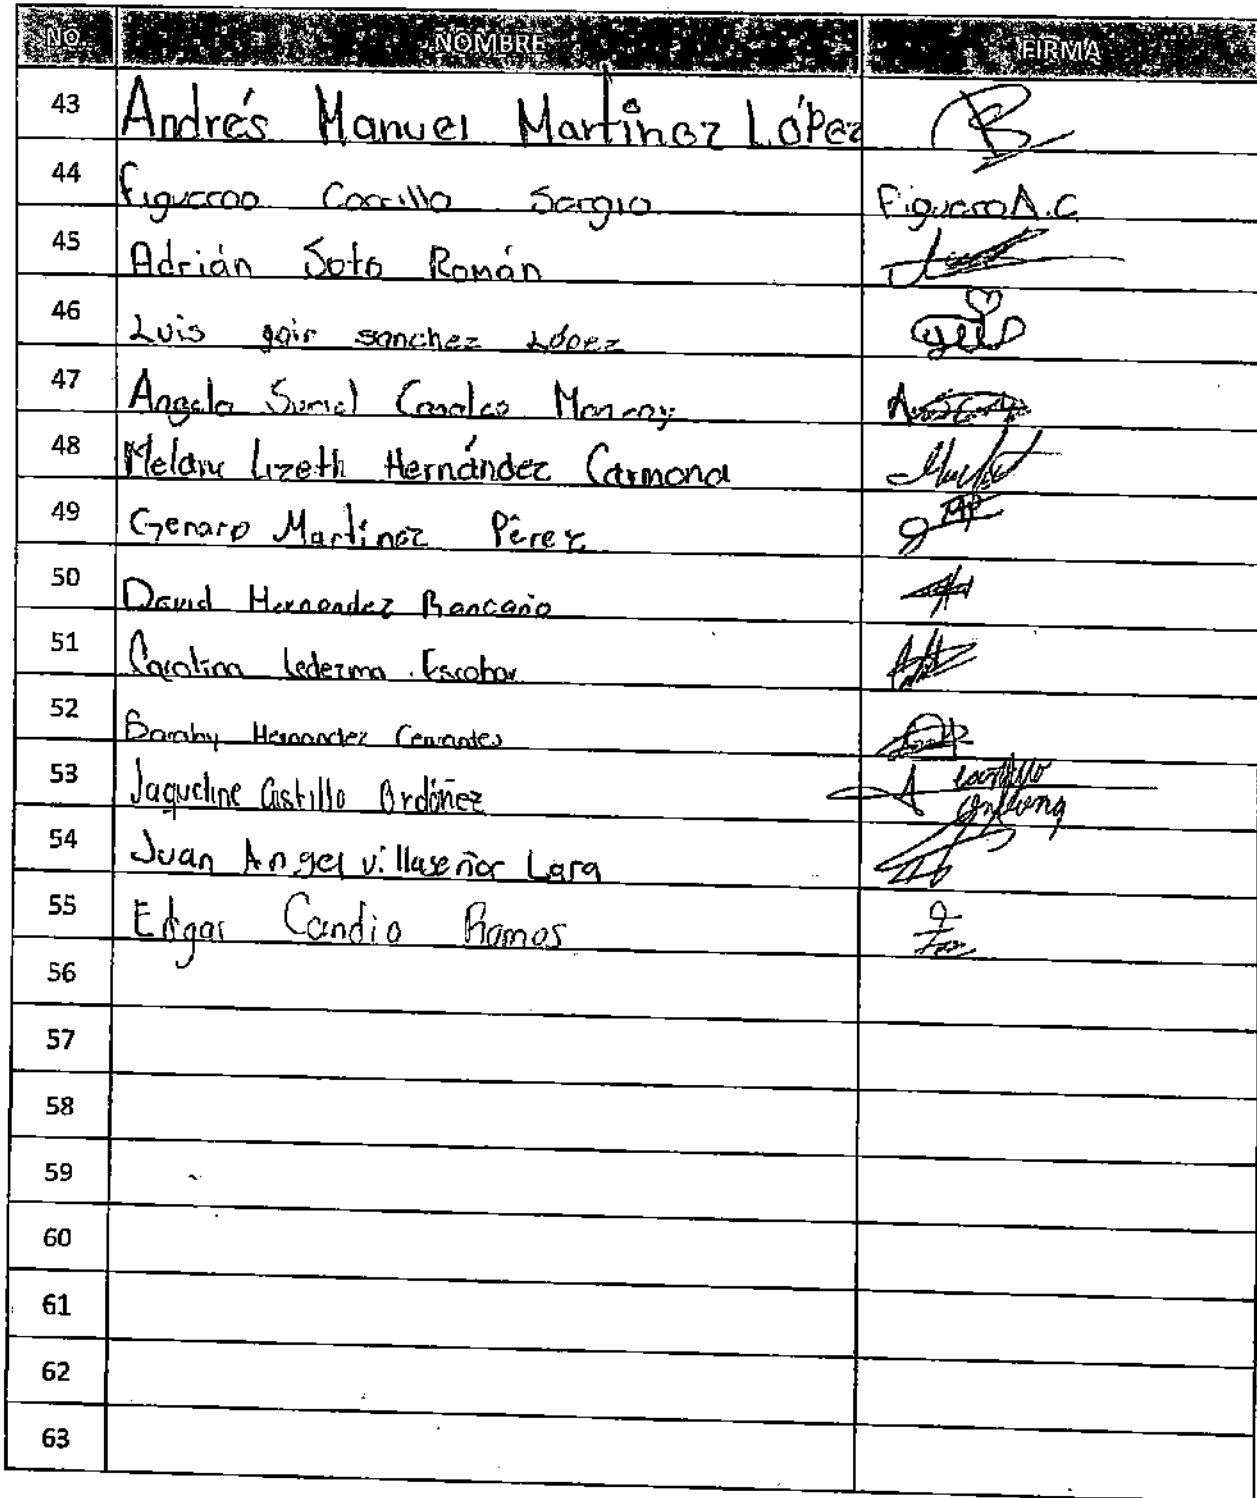 NO. NOMBRE FIRMA
43 Andrés Manuel Martinez López
44 Figueroa Carrillo Sergio FigueroA.C
45 Adrián Soto Román
46 Luis gair sanchez López
47 Angela Canales Monroy
48 Melanie Lizeth Hernández Carmona
49 Genaro Martínez Pérez
50 David Hernandez Rancaño
51 Carolina Ledezma Escobar
52 Hernandez Cervantes
53 Jaqueline Castillo Ordóñez
54 Juan Angel villaseñor Lara
55 Edgar Candio Ramos
56
57
58
59
60
61
62
63